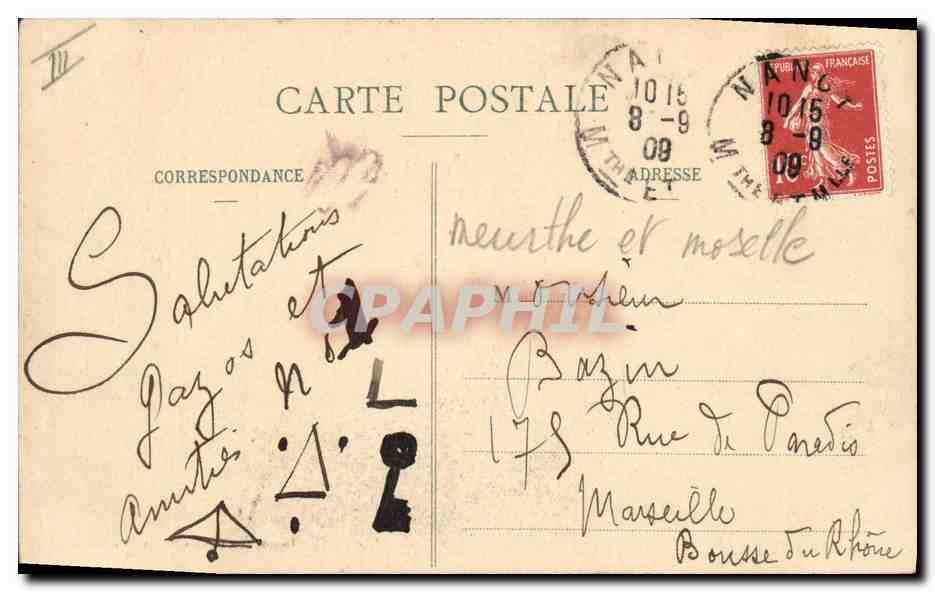 III
CARTE POSTALE
CORRESPONDANCE
ADRESSE
NANCY
10 15
8 -9
09
M THE ET
RÉPUBLIQUE FRANÇAISE
POSTES
10c
NANCY
10 15
8 -9
09
M THE ET M LLE
meurthe et moselle
Salutations
et
amitiés
N L
Monsieur
Bazin
175 Rue de Paradis
Marseille
Bousse du Rhône
CPAPHIL